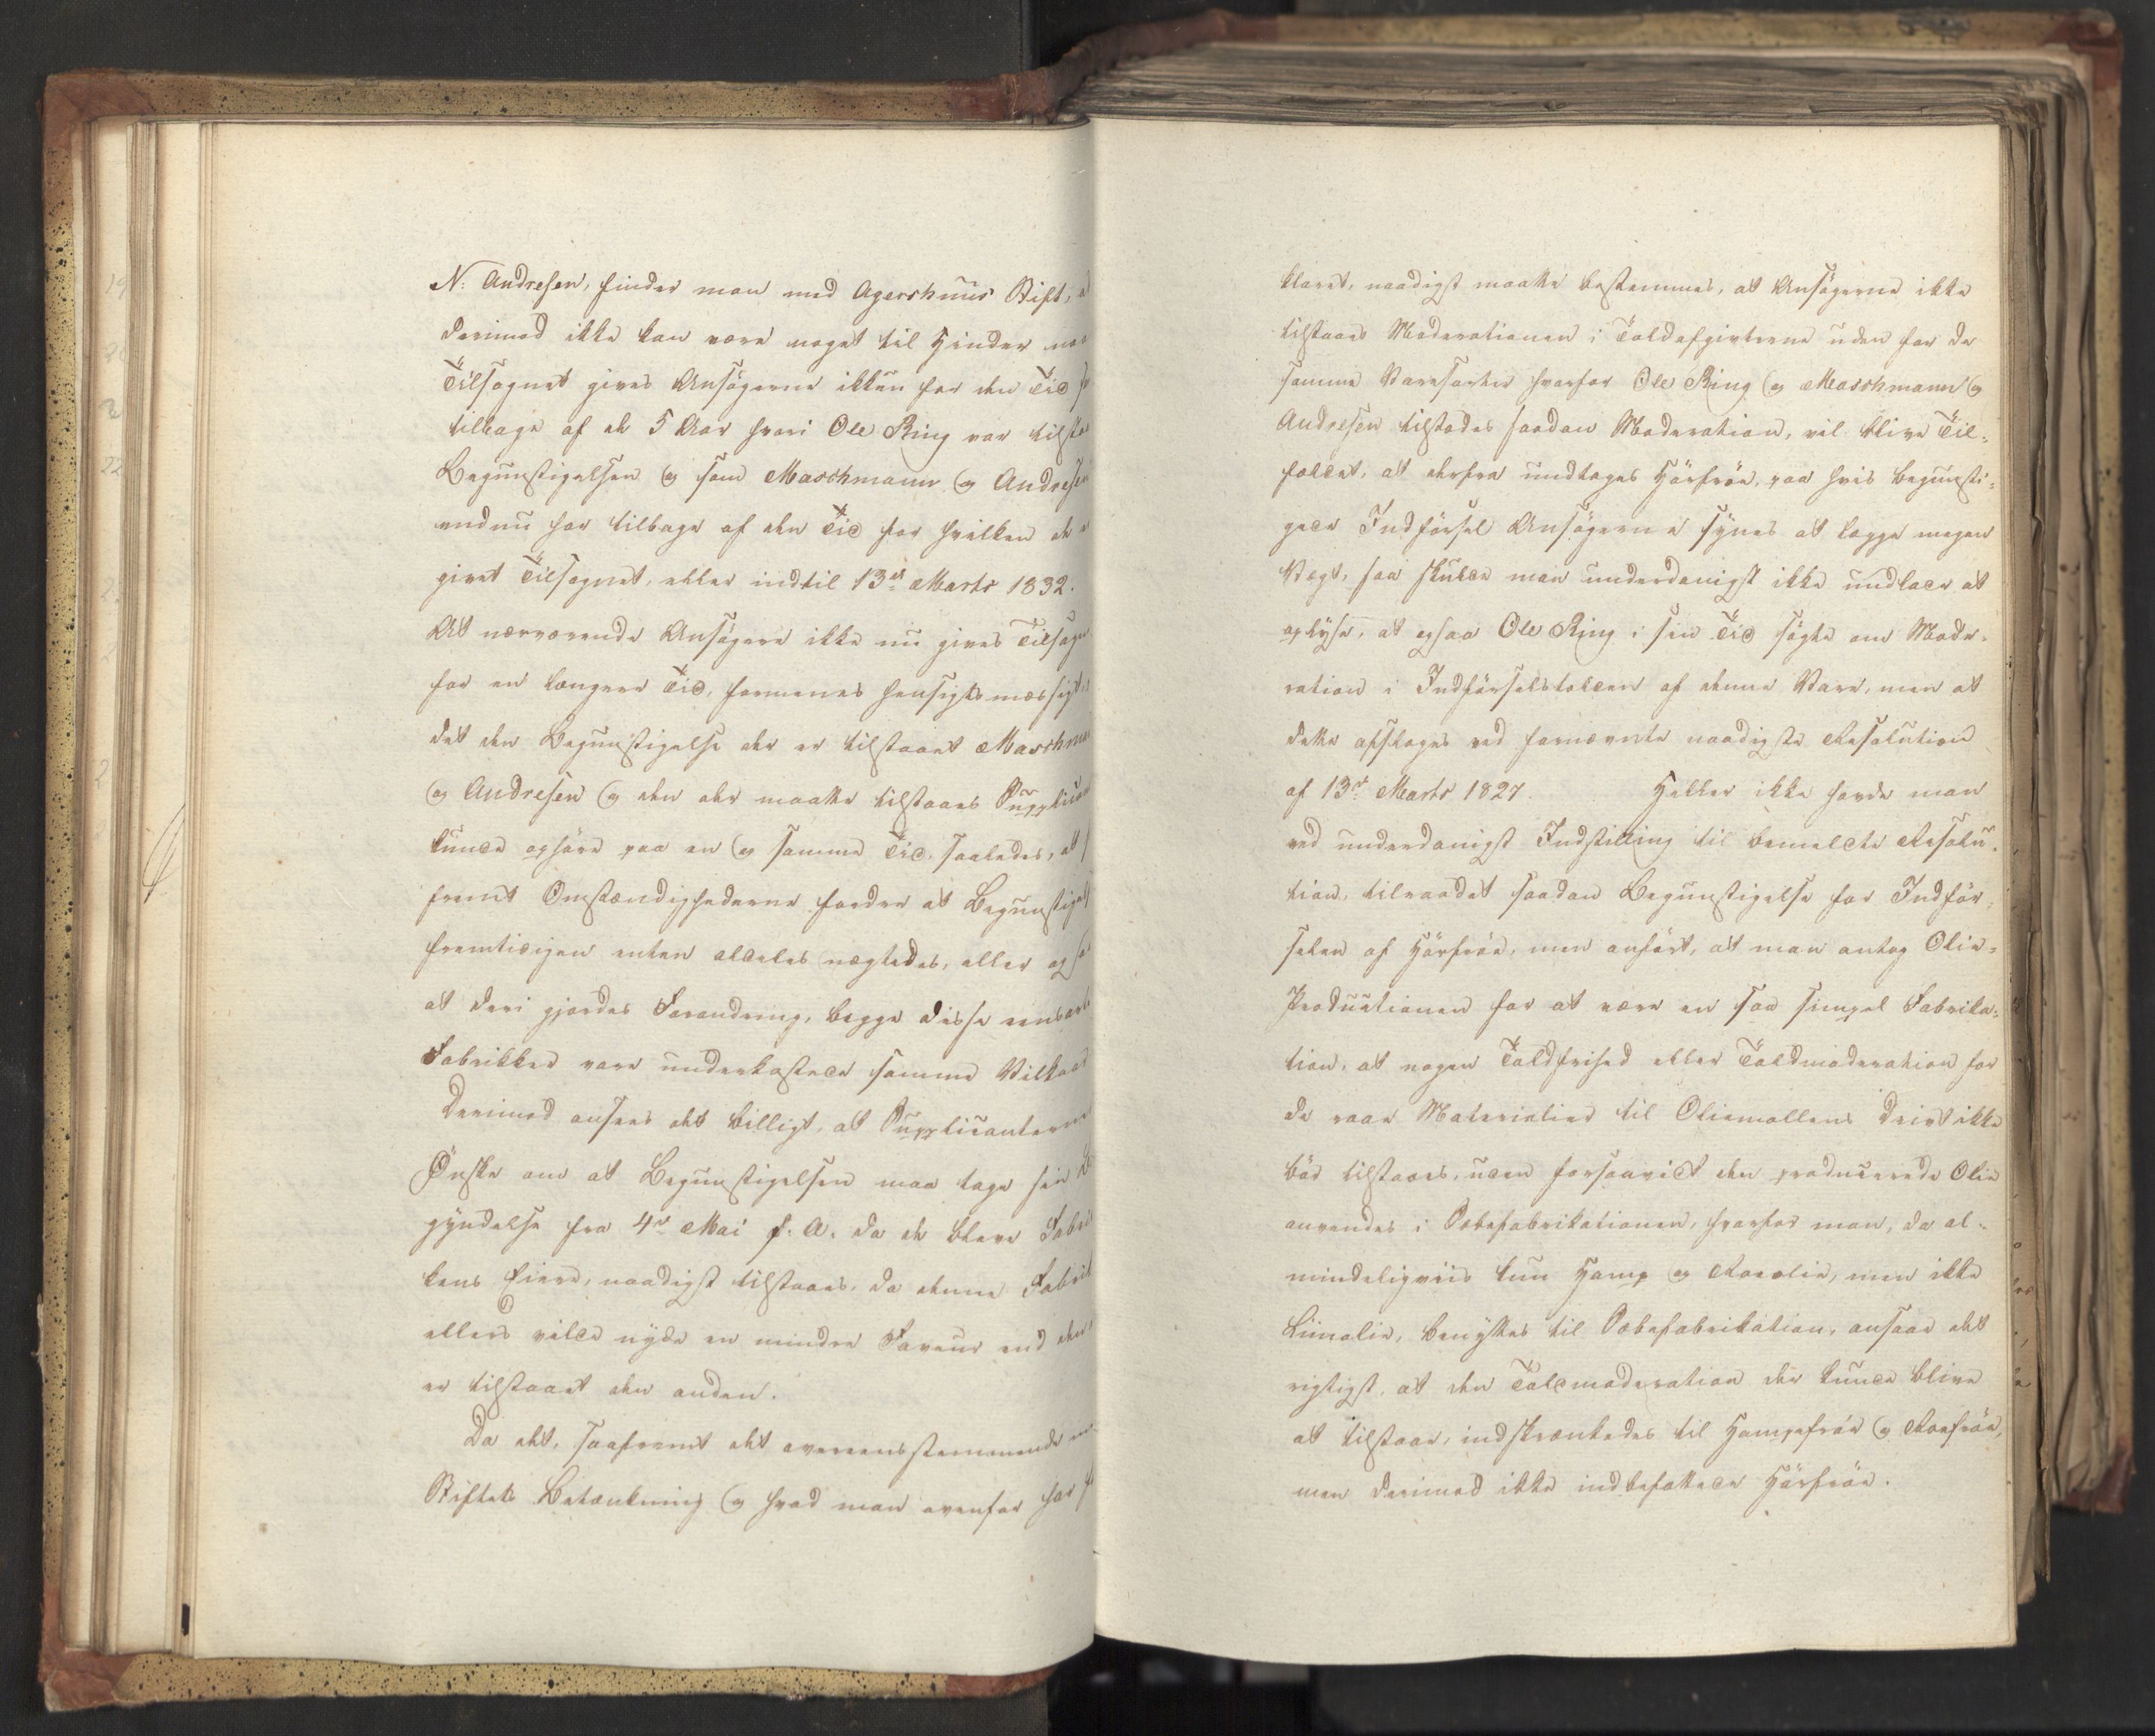 N: Andresen, finder man med Agershuus Stift,
derimod ikke kan være noget til Hinder
Tilsagnet gives Ansøgerne ikkun for den Tid
tilbage af de 5 Aar hvori Ole Ring var
Begunstigelsen og som Maschmann og Andresen
endnu har tilbage af den Tid for hvilken de
givet Tilsagnet, eller indtil 13de Marts 1832.
At nærværende Ansøgere ikke nu gives Tilsagn
for en længere Tid, formenes hensigtsmæssigt,
dat den Begunstigelse der er tilstaaet
og Andresen og den der maatte tilstaaes
kunde ophøre paa en og samme Tid, saaledes, at
fremt Omstændighederne fordre at
fremtidigen enten aldeles nægtedes, eller
at deri gjordes Forandring, begge disse
Fabrikker vare underkastede samme Vilkaar
Derimod ansees det billigt, at Supplicanternes
Ønske om at Begunstigelsen maa tage sin
gyndelse fra 4de Mai f: A. da de bleve
kens Eiere, naadigst tilstaaes, da denne
ellers vilde nyde en mindre Faveur end
er tilstaaet den anden.
Da det, saafremt det overeensstemmende
Stiftets Betænkning og hvad man ovenfor har
klaret, naadigst maatte bestemmes, at Ansøgerne ikke
tilstaaes Moderationen i Toldafgivterne uden for de
samme Varesorter hvorfor Ole Ring og Maschmann og
Andresen tilstodes saadan Moderation, vil blive Til-
fældet, at derfra undtages Hørfrøe, paa hvis begunsti-
gede Indførsel Ansøgerne synes at lægge megen
Vægt, saa skulde man underdanigst ikke undlade at
oplyse, at ogsaa Ole Ring i sin Tid søgte om Mode-
ration i Indførselstolden af denne Vare, men at
dette afsloges ved fornævnte naadigste Resolution
af 13de Marts 1827. Heller ikke havde man
ved underdanigst Indstilling til bemeldte Resolu-
tion, tilraadet saadan Begunstigelse for Indfør-
selen af Hørfrøe, men anført, at man antog Olie-
Productionen for at være en saa simpel Fabrika-
tion, at nogen Toldfrihed eller Toldmoderation for
de raae Materialier til Oliemøllens Drivt ikke
bør tilstaaes, uden forsaavidt den producerede Olie
anvendes i Sæbefabrikationen, hvorfor man, da al-
mindeligviis kun Hamp og Roeolie, men ikke
Liinolie, benyttes til Sæbefabrikation, ansaae det
rigtigst, at den Toldmoderation der kunde blive
at tilstaae, indskrænkedes til Hampefrøe og Roefrøe,
men derimod ikke indbefattede Hørfrøe.